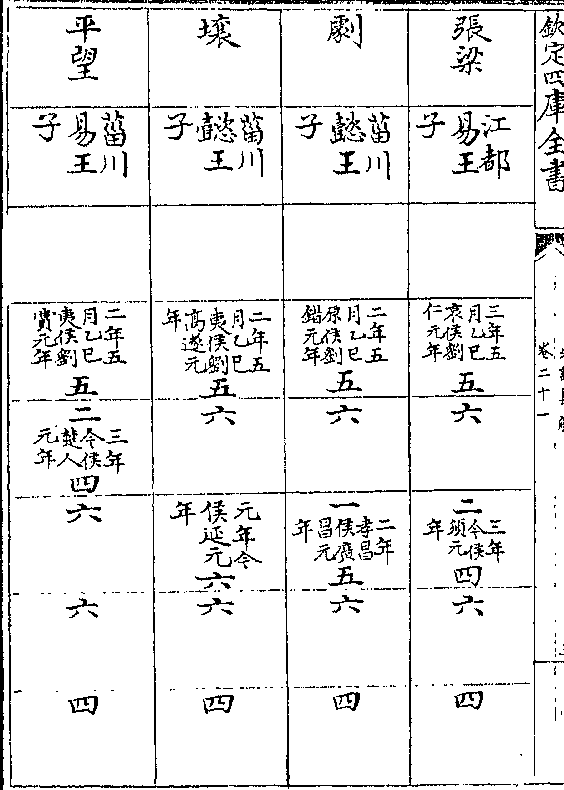 欽定四庫全書
卷二十一
張梁
江都
易王
子
三年五
月乙巳
哀侯劉
仁元年
五
六
二
三年
今侯
元
年
四
六
四
劇
菑川
懿王
子
二年五
月乙巳
原侯劉
錯元年
五
六
一
二年
孝昌
侯廣
昌元
年
五
六
四
壤
菑川
懿王
子
二年五
月乙巳
夷侯劉
高遂元
年
五
六
元年今
侯延元
年
六
六
四
平望
菑川
易王
子
二年五
月乙巳
夷侯劉
賞元年
五
二
三年
今侯
楚人
元年
四
六
六
四